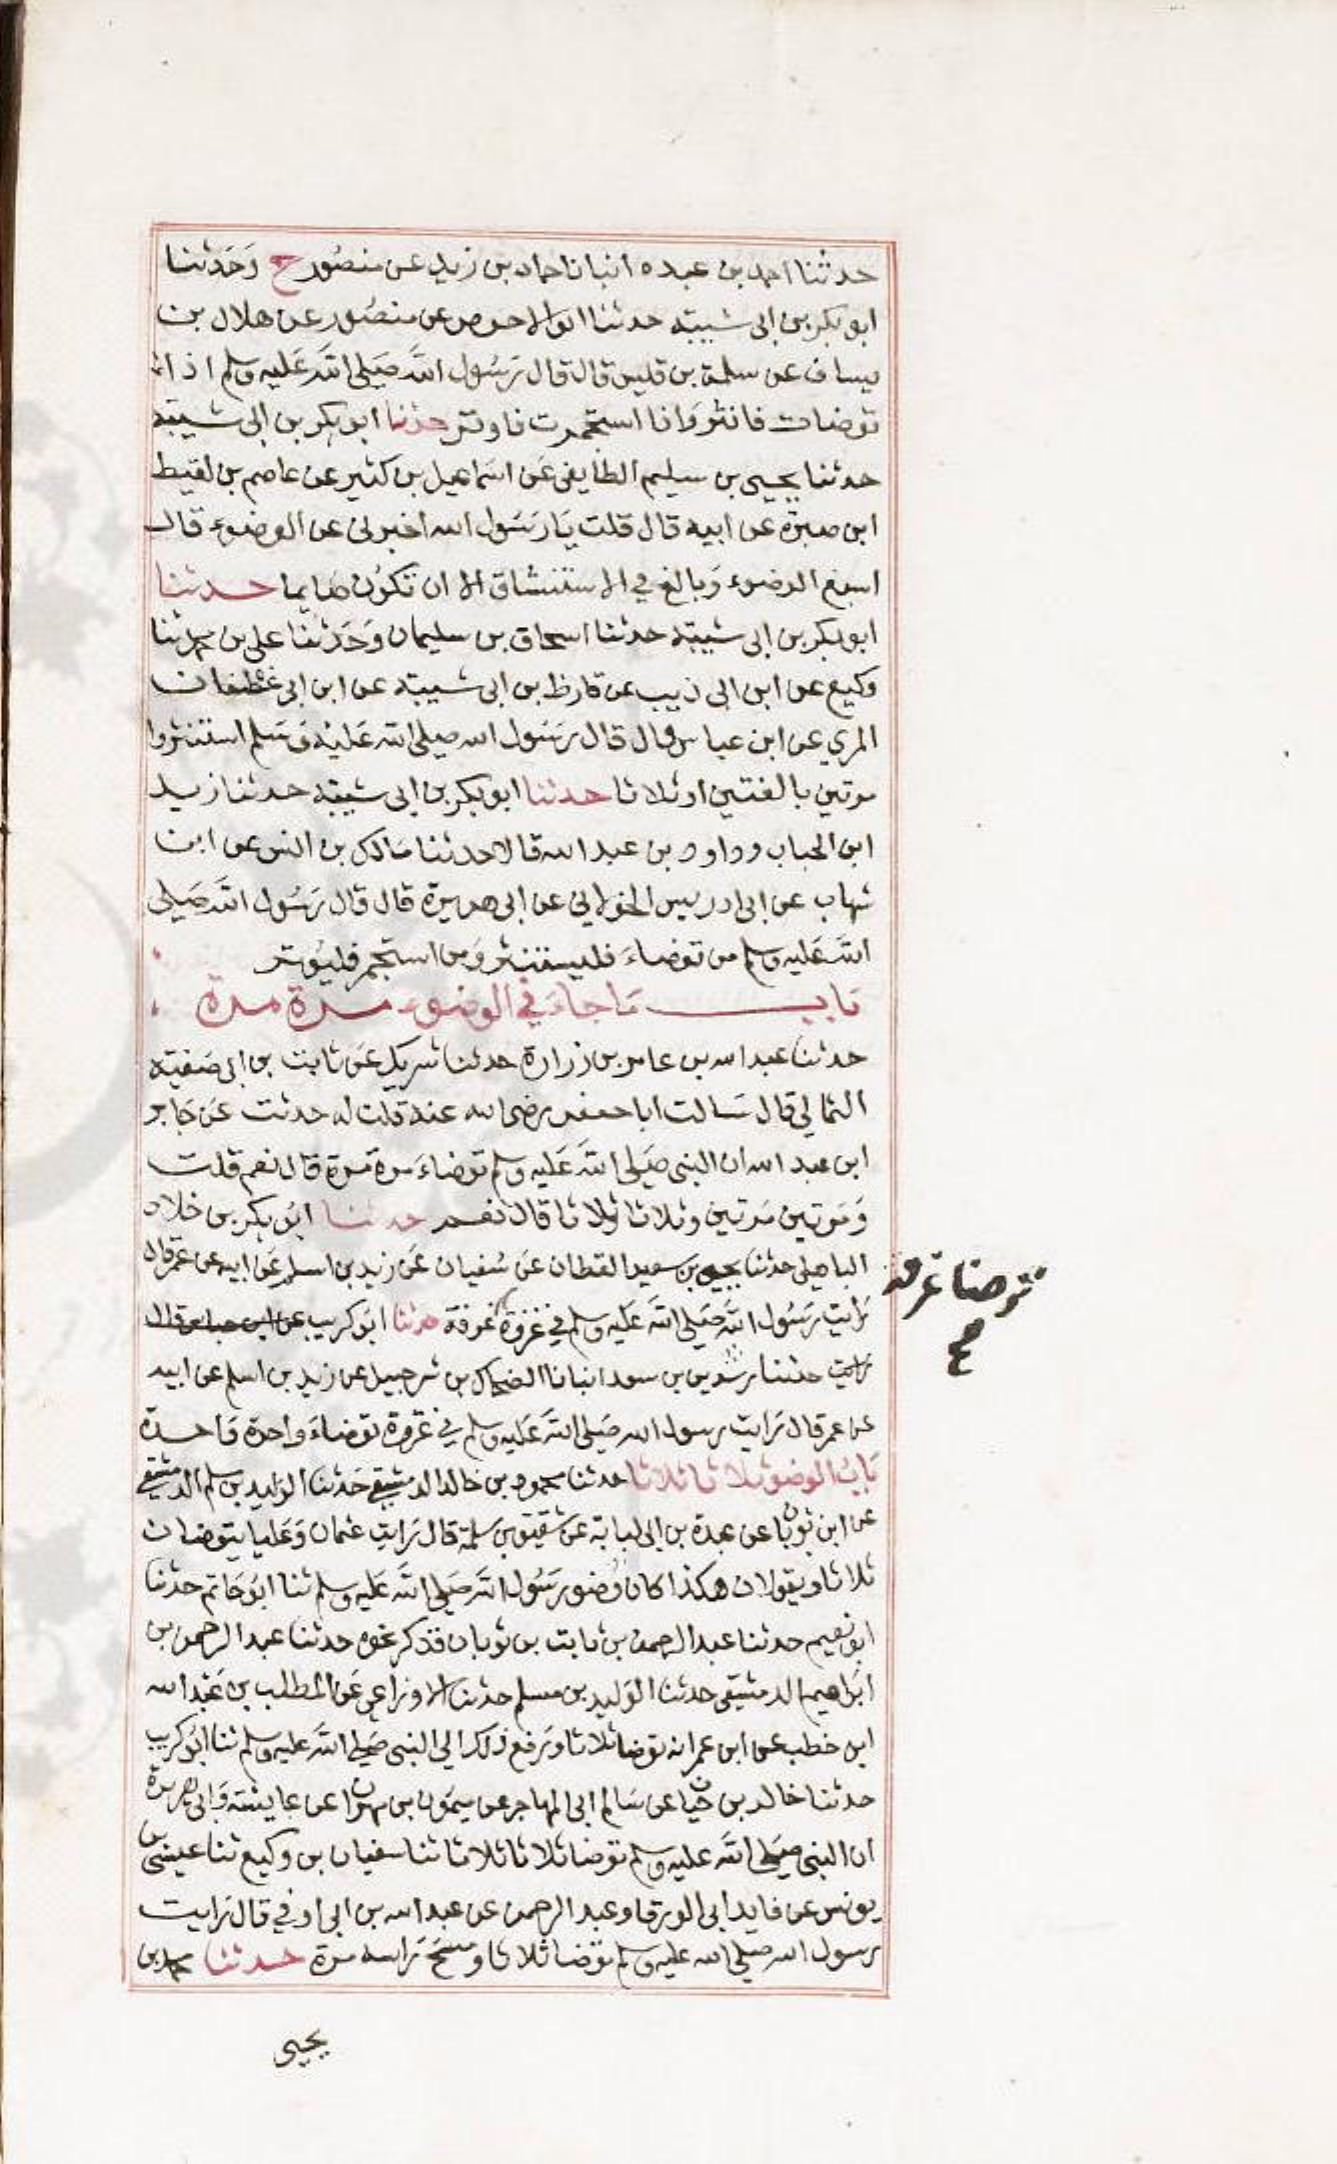 حدثنا احمد بن عبده انبانا حماد بن زيد عن منصور ح وحدثنا
ابو بكر بن ابى شيبته حدثنا ابو الاحوص عن منصور عن هلال بن
يساف عن سلمة بن قليس قال قال رسول الله صلى الله عليه وسلم اذا
توضات فانثر واذا استجمرت فاوتر حدثنا ابو بكر بن ابى شيبته
حدثنا يحيى بن سيليم الطايفى عن اسماعيل بن كثير عن عاصم بن لقيط
ابن صبرة عن ابيه قال قلت يا رسول الله اخبرنى عن الوضوء قال
اسبغ الوضوء وبالغ في الاستنشاق الا ان تكون صايما حدثنا
ابو بكر بن ابى شيبته حدثنا اسحاق بن سليمان وحدثنا على بن محمد ثنا
وكيع عن ابن ابى ذييب عن قارظ بن ابى شيبته عن ابن ابى غظفان
المري عن ابن عباس قال قال رسول الله صلى الله عليه وسلم استنثروا
مرتين بالغتين او ثلاثا حدثنا ابو بكر بن ابى شيبته حدثنا زيد
ابن الحباب وداود بن عبد الله قالا حدثنا مالك بن انس عن ابن
شهاب عن ابى ادريس الخولانى عن ابى هريرة قال قال رسول الله صلى
الله عليه وسلم من توضاء فليستنثر ومن استجمر فليوتر
باب ما جاء في الوضوء مرة مرة
حدثنا عبد الله بن عامر بن زرارة حدثنا شريك عن ثابت بن ابى صفية
الثمالي قال سالت ابا جعفر رضى الله عنه قلت له حدثت عن جابر
ابن عبد الله ان النبى صلى الله عليه وسلم توضاء مرة مرة قال نعم قلت
ومرتين مرتين وثلاثا ثلاثا قال نعم حدثنا ابو بكر بن خلاد
الباهلى حدثنا يحيى بن سعيد القطان عن سفيان عن زيد بن اسلم عن ابيه عن عمر قال
رايت رسول الله صلى الله عليه وسلم في غزوة غرفة حدثنا ابو كريب عن ابن عباس قال
رايت حدثنا رشدين بن سعد انبانا الضحاك بن شرحبيل عن زيد بن اسلم عن ابيه
عن عمر قال رايت رسول الله صلى الله عليه وسلم في غزوة توضاء واحدة واحدة
باب الوضو ثلاثا ثلاثا حدثنا محمود بن خالد الدمشقى حدثنا الوليد بن مسلم الدمشقى
عن ابن ثوبان عن عبدة بن ابى لبابة عن شقيق بن سلمة قال رايت عثمان وعليا يتوضان
ثلاثا ويقولان هكذا كان وضو رسول الله صلى الله عليه وسلم ثنا ابو حاتم حدثنا
ابو نعيم حدثنا عبد الرحمن بن ثابت بن ثوبان فذكر نحوه حدثنا عبد الرحمن بن
ابراهيم الدمشقى حدثنا الوليد بن مسلم حدثنا الاوزاعي عن المطلب بن عبد الله
ابن خطب عن ابن عمر انه توضا ثلاثا ورفع ذلك الي النبى صلى الله عليه وسلم ثنا ابو كريب
حدثنا خالد بن حيان عن سالم ابى المهاجر عن ميمون بن مهران عن عايشة وابى هريرة
ان النبى صلى الله عليه وسلم توضا ثلاثا ثلاثا ثنا سفيان بن وكيع ثنا عيسى بن
يونس عن فايد ابى الورقا وعبد الرحمن عن عبد الله بن ابى اوفي قال رايت
رسول الله صلى الله عليه وسلم توضا ثلاثا ومسح راسه مرة حدثنا محمد بن
توضا غرفة
صح
يحيى